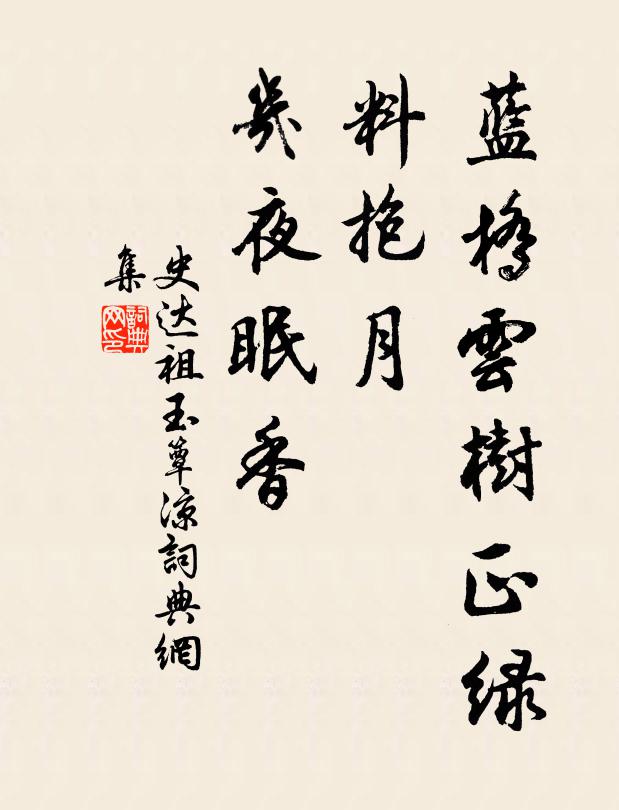 藍橋雲樹正緑
料抱月
幾夜眠香
史达祖玉蕈涼詞典網
集
詞典网印